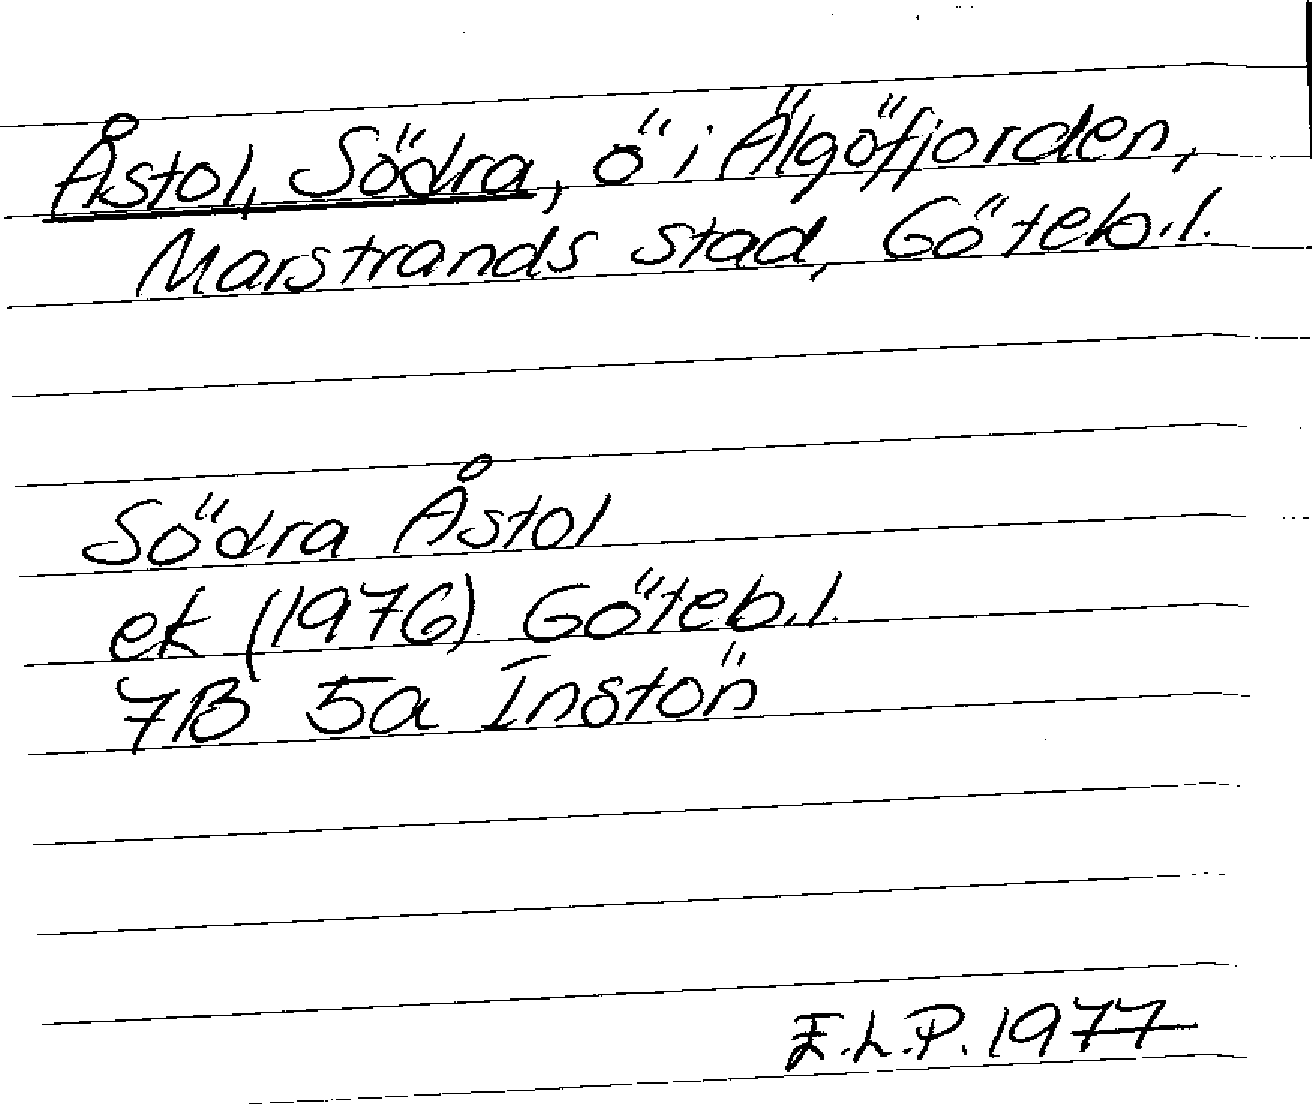 Åstol, Södra, ö i Älgöfjorden,
Marstrands stad, Göteb.l.
Södra Åstol
ek (1976) Göteb.l.
7B 5a Instön
E.L.P. 1977